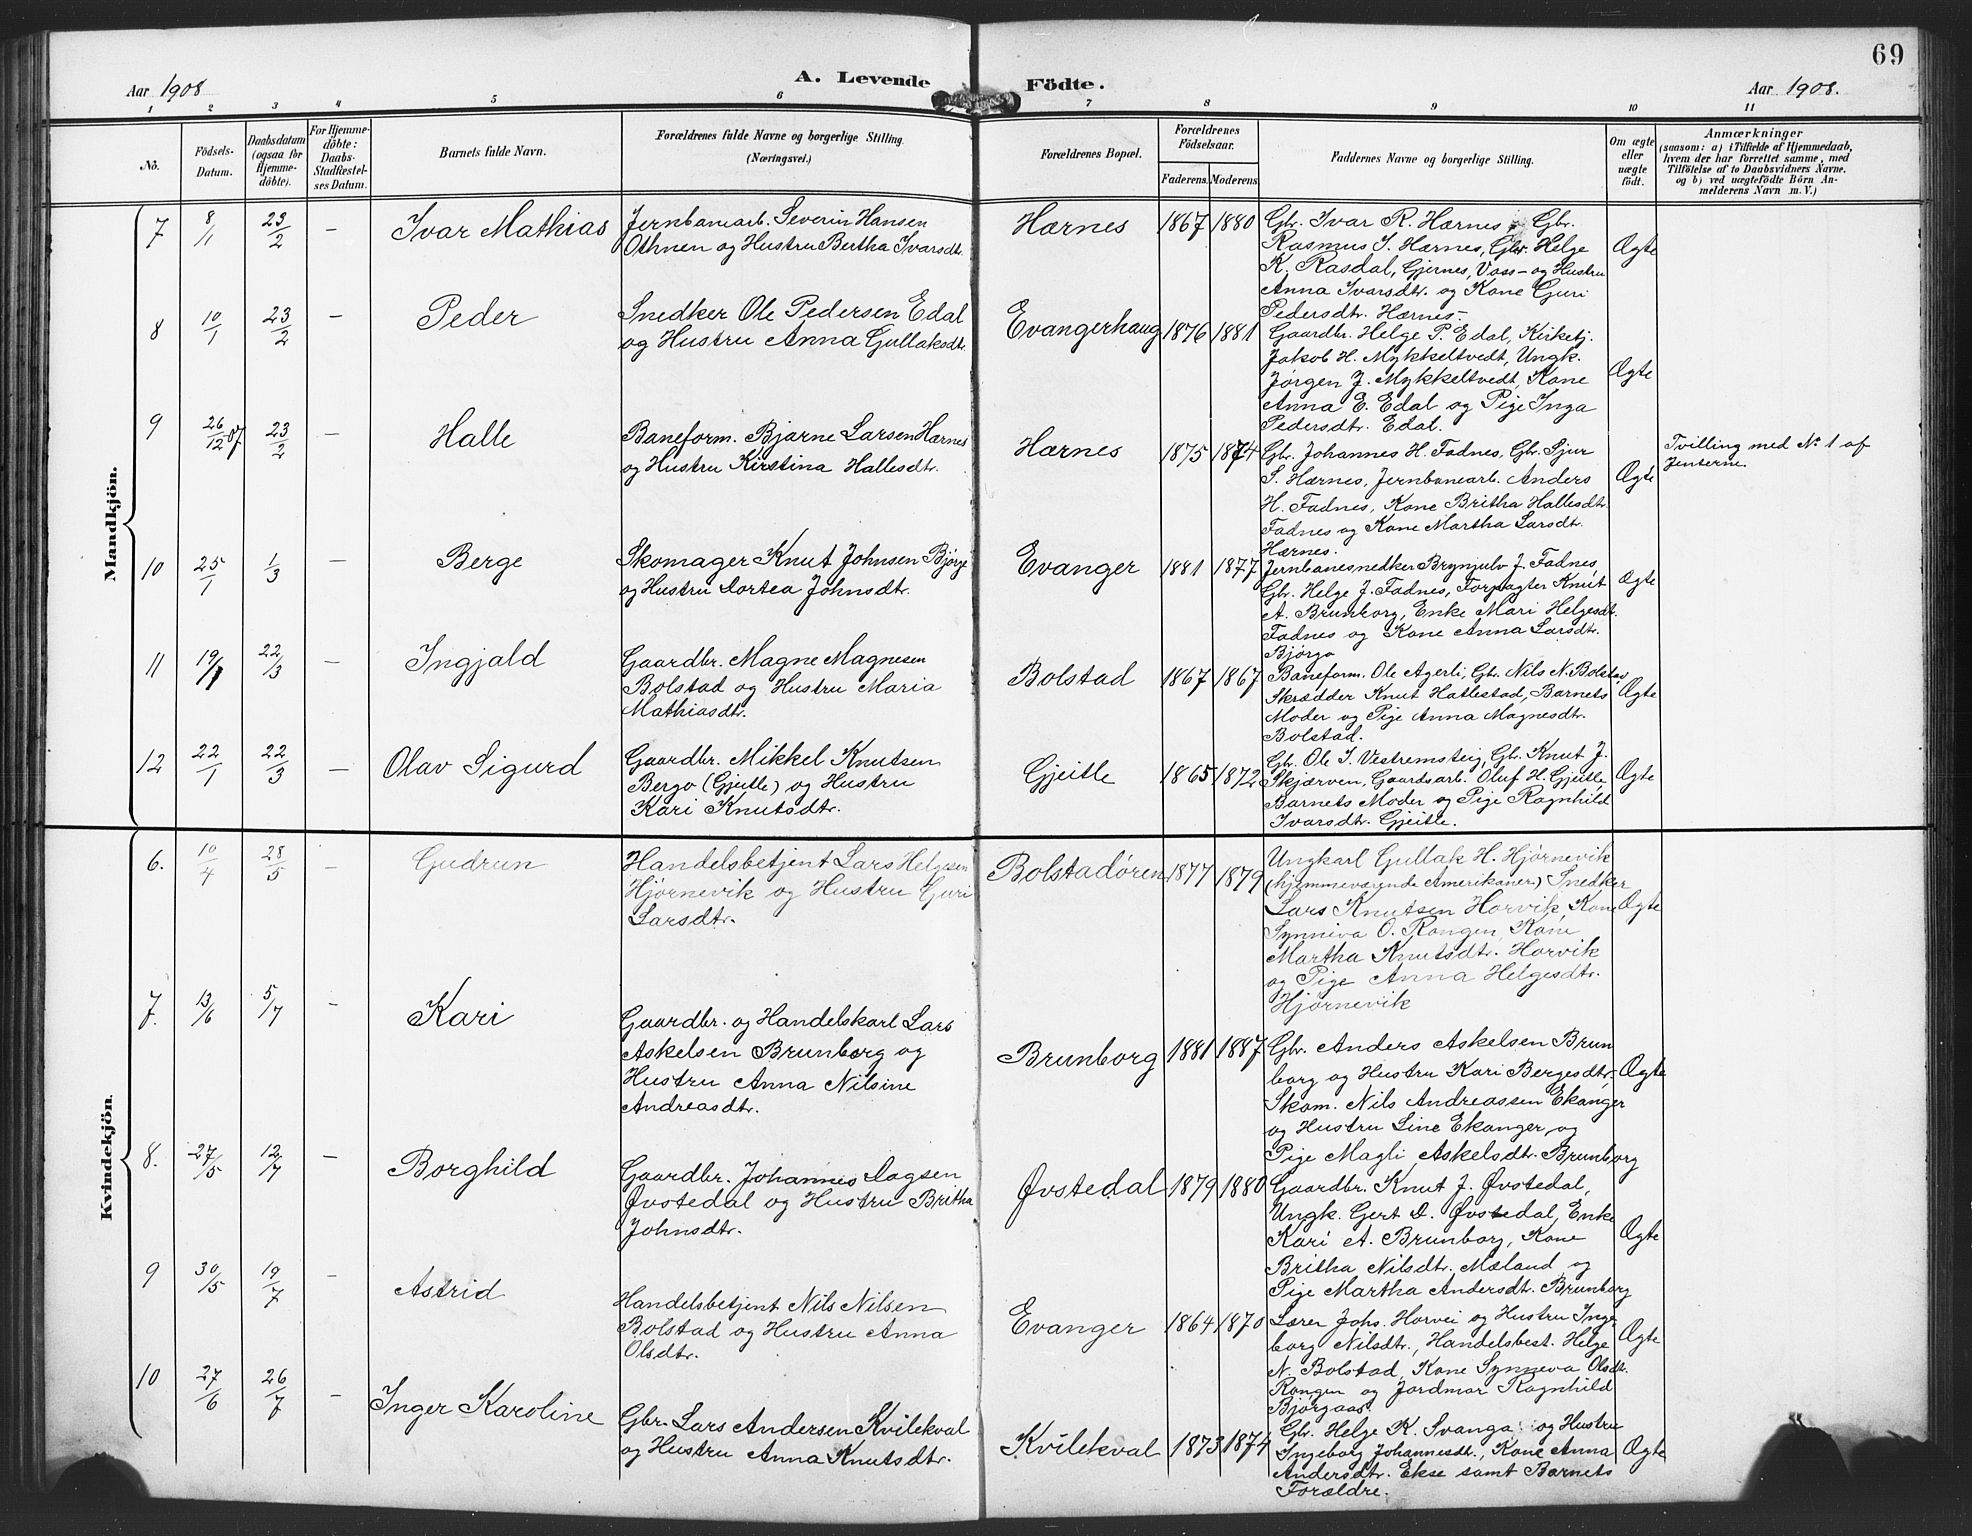 69
Aar 1908
A. Levende
Födte.
Aar 1908.
1 2 3 4 5 6 7 8 9 10 11
No.
Födsels-
Datum.
Daabsdatum
(ogsaa for
Hjemme-
döbte).
For Hjemme-
döbte:
Daabs-
Stadfæstel-
ses Datum.
Barnets fulde Navn.
Forældrenes fulde Navne og borgerlige Stilling.
(Næringsvei.)
Forældrenes Bopæl.
Forældrenes
Födselsaar.
Faderens. Moderens.
Faddernes Navne og borgerlige Stilling.
Om ægte
eller
uægte
födt.
Anmærkninger
(saasom: a) i Tilfælde af Hjemmedaab,
hvem der har forrettet samme, med
Tilföielse af to Daabsvidners Navne.
og b) ved uægtefödte Börn An-
melderens Navn m. V.)
Mandkjön.
7 8/1 23/2 — Ivar Mathias
Jernbanearb. Severin Hansen
Othnen og Hustru Bertha Ivarsdt.
Hærnes 1867 1880
Gbr. Ivar R. Hærnes, Gbr.
Rasmus I. Hærnes, Gbr. Helge
K. Rasdal, Gjernes, Voss – og Hustru
Anna Ivarsdtr. og Kone Guri
Pedersdtr. Hærnes.
Ægte
8 10/1 23/2 — Peder
Snedker Ole Pedersen Edal
og Hustru Anna Gullaksdt.
Evangerhaug 1876 1881
Gaardbr. Helge P. Edal, Kirketj.
Jakob H. Mykkeltvedt, Ungk.
Jørgen J. Mykkeltvedt, Kone
Anna E. Edal og Pige Inga
Pedersdtr. Edal.
Ægte
9 26/12 07 23/2 — Halle
Baneform. Bjarne Larsen Hærnes
og Hustru Kirstina Hallesdtr.
Hærnes 1875 1874
Gbr. Johannes H. Fadnes, Gbr. Sjur
S. Hærnes, Jernbanearb. Anders
H. Fadnes, Kone Britha Hallesdtr.
Fadnes og Kone Martha Larsdtr.
Hærnes.
Ægte
Tvilling med No 1 af
Jenterne.
10 25/1 1/3 — Berge
Skomager Knut Johnsen Bjørge
og Hustru Dortea Johnsdtr.
Evanger 1881 1877
Jernbanesnedker Brynjulv J. Fadnes,
Gbr. Helge J. Fadnes, Forpagter Knut
A. Brunborg, Enke Mari Helgesdt.
Fadnes og Kone Anna Larsdtr.
Bjørgo
Ægte
11 19/1 22/3 — Ingjald
Gaardbr. Magne Magnesen
Bolstad og Hustru Maria
Mathiasdtr.
Bolstad 1867 1867
Baneform. Ole Agerli, Gbr. Nils N. Bolstad,
Skrædder Knut Hatlestad, Barnets
Moder og Pige Anna Magnesdtr.
Bolstad.
Ægte
12 22/1 22/3 — Olav Sigurd
Gaardbr. Mikkel Knutsen
Bergo (Gjeitle) og Hustru
Kari Knutsdtr.
Gjeitle 1865 1872
Gbr. Ole I. Vestremsteig, Gbr. Knut J.
Skjærven, Gaardsarb. Oluf H. Gjeitle,
Barnets Moder og Pige Ragnhild
Ivarsdtr. Gjeitle.
Ægte
Kvindekjön.
6. 10/4 28/5 — Gudrun
Handelsbetjent Lars Helgesen
Hjørnevik og Hustru Guri
Larsdtr.
Bolstadøren 1877 1879
Ungkarl Gullak H. Hjørnevik
(hjemmeværende Amerikaner) Snedker
Lars Knutsen Horvik, Kone
Synneva O. Rongen, Kone
Martha Knutsdtr. Horvik
og Pige Anna Helgesdtr.
Hjørnevik
Ægte
7. 13/6 5/7 — Kari
Gaardbr. og Handelskarl Lars
Askelsen Brunborg og
Hustru Anna Nilsine
Andreasdtr.
Brunborg 1881 1887
Gbr. Anders Askelsen Brun
borg og Hustru Kari Bergesdtr.
Skom. Nils Andreassen Ekanger
og Hustru Line Ekanger og
Pige Magli Askelsdtr. Brunborg
Ægte
8. 27/5 12/7 — Borghild
Gaardbr. Johannes Dagsen
Øvstedal og Hustru Britha
Johnsdtr.
Øvstedal 1879 1880
Gaardbr. Knut J. Øvstedal,
Ungk. Gert D. Øvstedal, Enke
Kari A. Brunborg, Kone
Britha Nilsdtr. Mæland og
Pige Martha Andersdt. Brunborg
Ægte
9 30/5 19/7 — Astrid
Handelsbetjent Nils Nilsen
Bolstad og Hustru Anna
Olsdtr.
Evanger 1864 1870
Lærer Johs. Horvei og Hustru Inge
borg Nilsdtr., Handelsbest. Helge
N. Bolstad, Kone Synneva Olsdt.
Rongen og Jordmor Ragnhild
Bjørgaas.
Ægte
10 27/6 26/7 — Inger Karoline
Gbr. Lars Andersen Kvilekval
og Hustru Anna Knutsdtr.
Kvilekval 1873 1874
Gbr. Helge K. Svanga, og Hustru
Ingeborg Johannesdt., Kone Anna
Andersdtr. Ekse samt Barnets
Forældre.
Ægte